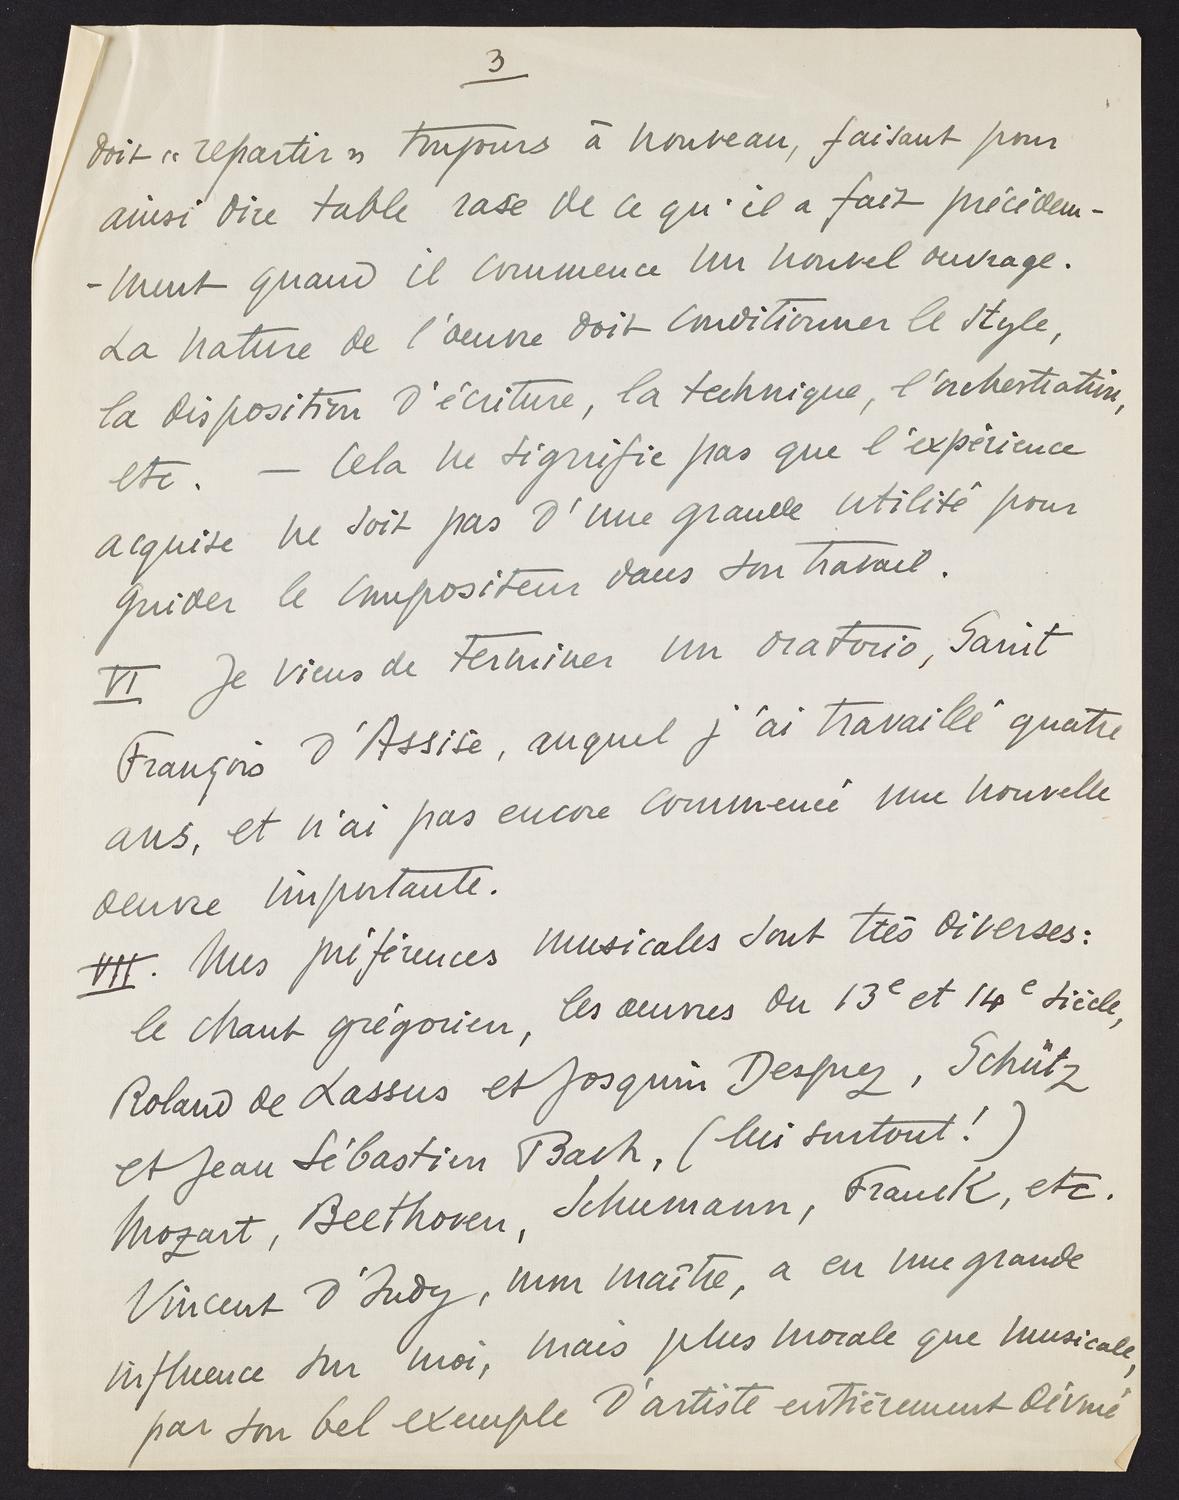 3
doit « repartir » toujours à nouveau, faisant pour
ainsi dire table rase de ce qu'il a fait précédem-
-ment quand il commence un nouvel ouvrage.
La nature de l'oeuvre doit conditionner le style,
la disposition d'écriture, la technique, l'orchestration,
etc. — Cela ne signifie pas que l'expérience
acquise ne soit pas d'une grande utilité pour
guider le compositeur dans son travail.
VI Je viens de terminer un oratorio, Saint
François d'Assise, auquel j'ai travaillé quatre
ans, et n'ai pas encore commencé une nouvelle
oeuvre importante.
VII. Mes préférences musicales sont très diverses:
le chant grégorien, les oeuvres du 13e et 14e siècle,
Roland de Lassus et Josquin Desprez, Schütz
et Jean Sébastien Bach, (lui surtout!)
Mozart, Beethoven, Schumann, Franck, etc.
Vincent d'Indy, mon maître, a eu une grande
influence sur moi, mais plus morale que musicale,
par son bel exemple d'artiste entièrement dévoué